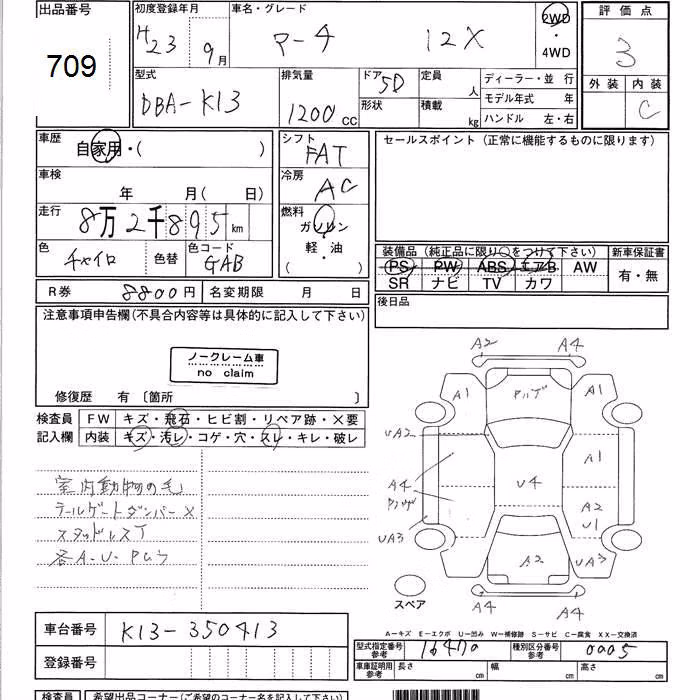 出品番号
709
初度登録年月
H23 9月
車名・グレード
マーチ 12X
2WD
・
4WD
評価点
3
外装 内装
C
型式
DBA-K13
排気量
1200 CC
ドア 5D
形状
定員 人
積載 kg
ディーラー・並 行
モデル年式 年
ハンドル 左・右
車歴
自家用・( )
シフト
FAT
セールスポイント (正常に機能するものに限ります)
車検
年 月( 日)
冷房
AC
走行
8万2千895km
燃料
ガソリン
軽・油
( )
色
チャイロ
色替
色コード
GAB
装備品 (純正品に限り○をつけて下さい)
新車保証書
PS PW ABS エアB AW
SR ナビ TV カワ
有・無
R券 8800円
名変期限 月 日
後日品
注意事項申告欄(不具合内容等は具体的に記入して下さい)
ノークレーム車
no claim
修復歴 有 〔箇所 〕
検査員
記入欄
FW キズ・飛石・ヒビ割・リペア跡・X要
内装 キズ・汚レ・コゲ・穴・スレ・キレ・破レ
室内動物の毛
テールゲートダンパーX
スタッドレスT
各A-U-
A2 A4
A1 A1
UA2
A1
A4
U4
A2
U1
UA3
A2
UA3
A4 A4
スペア
A-キズ E-エクボ U-凹み W-補修跡 S-サビ C-腐食 XX-交換済
車台番号 K13-350413
登録番号
型式指定番号
参考
16470
種別区分番号
参考
0005
車庫証明用
参考
長さ cm
幅 cm
高さ cm
検査員
希望出品コーナー(ご希望のコーナー名を記入して下さい)